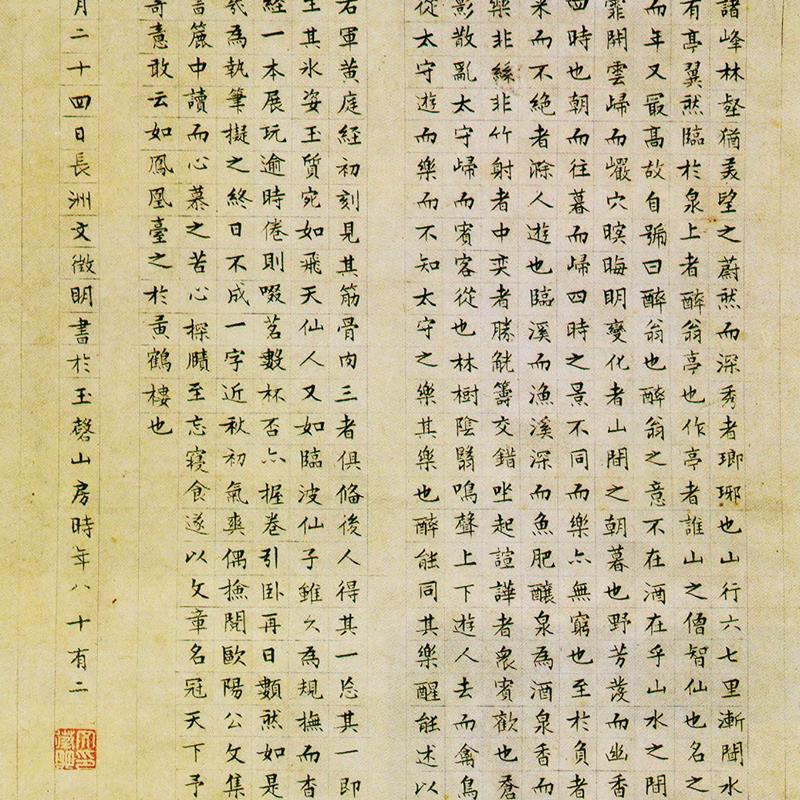 諸峰林壑猶美望之蔚然而深秀者瑯琊也山行六七里漸聞水
有亭翼然臨於泉上者醉翁亭也作亭者誰山之僧智仙也名之
而年又最高故自號曰醉翁也醉翁之意不在酒在乎山水之間
霏開雲歸而巖穴暝晦明變化者山間之朝暮也野芳發而幽香
四時也朝而往暮而歸四時之景不同而樂亦無窮也至於負者
來而不絕者滁人遊也臨溪而漁溪深而魚肥釀泉為酒泉香而
樂非絲非竹射者中奕者勝觥籌交錯坐起諠譁者衆賓歡也蒼
影散亂太守歸而賓客從也林樹陰翳鳴聲上下遊人去而禽鳥
從太守遊而樂而不知太守之樂其樂也醉能同其樂醒能述以
右軍黃庭經初刻見其筋骨肉三者俱備後人得其一忘其一即
其氷姿玉質宛如飛天仙人又如臨波仙子雖久為規撫而杳
經一本展玩逾時倦則啜茗數杯否亦握卷引卧再日數然如是
為執筆擬之終日不成一字近秋初氣爽偶撿閱歐陽公文集
簏中讀而心慕之苦心探賾至忘寢食遂以文章名冠天下予
奇意敢云如鳳凰臺之於黃鶴樓也
月二十四日長洲文徵明書於玉磬山房時年八十有二